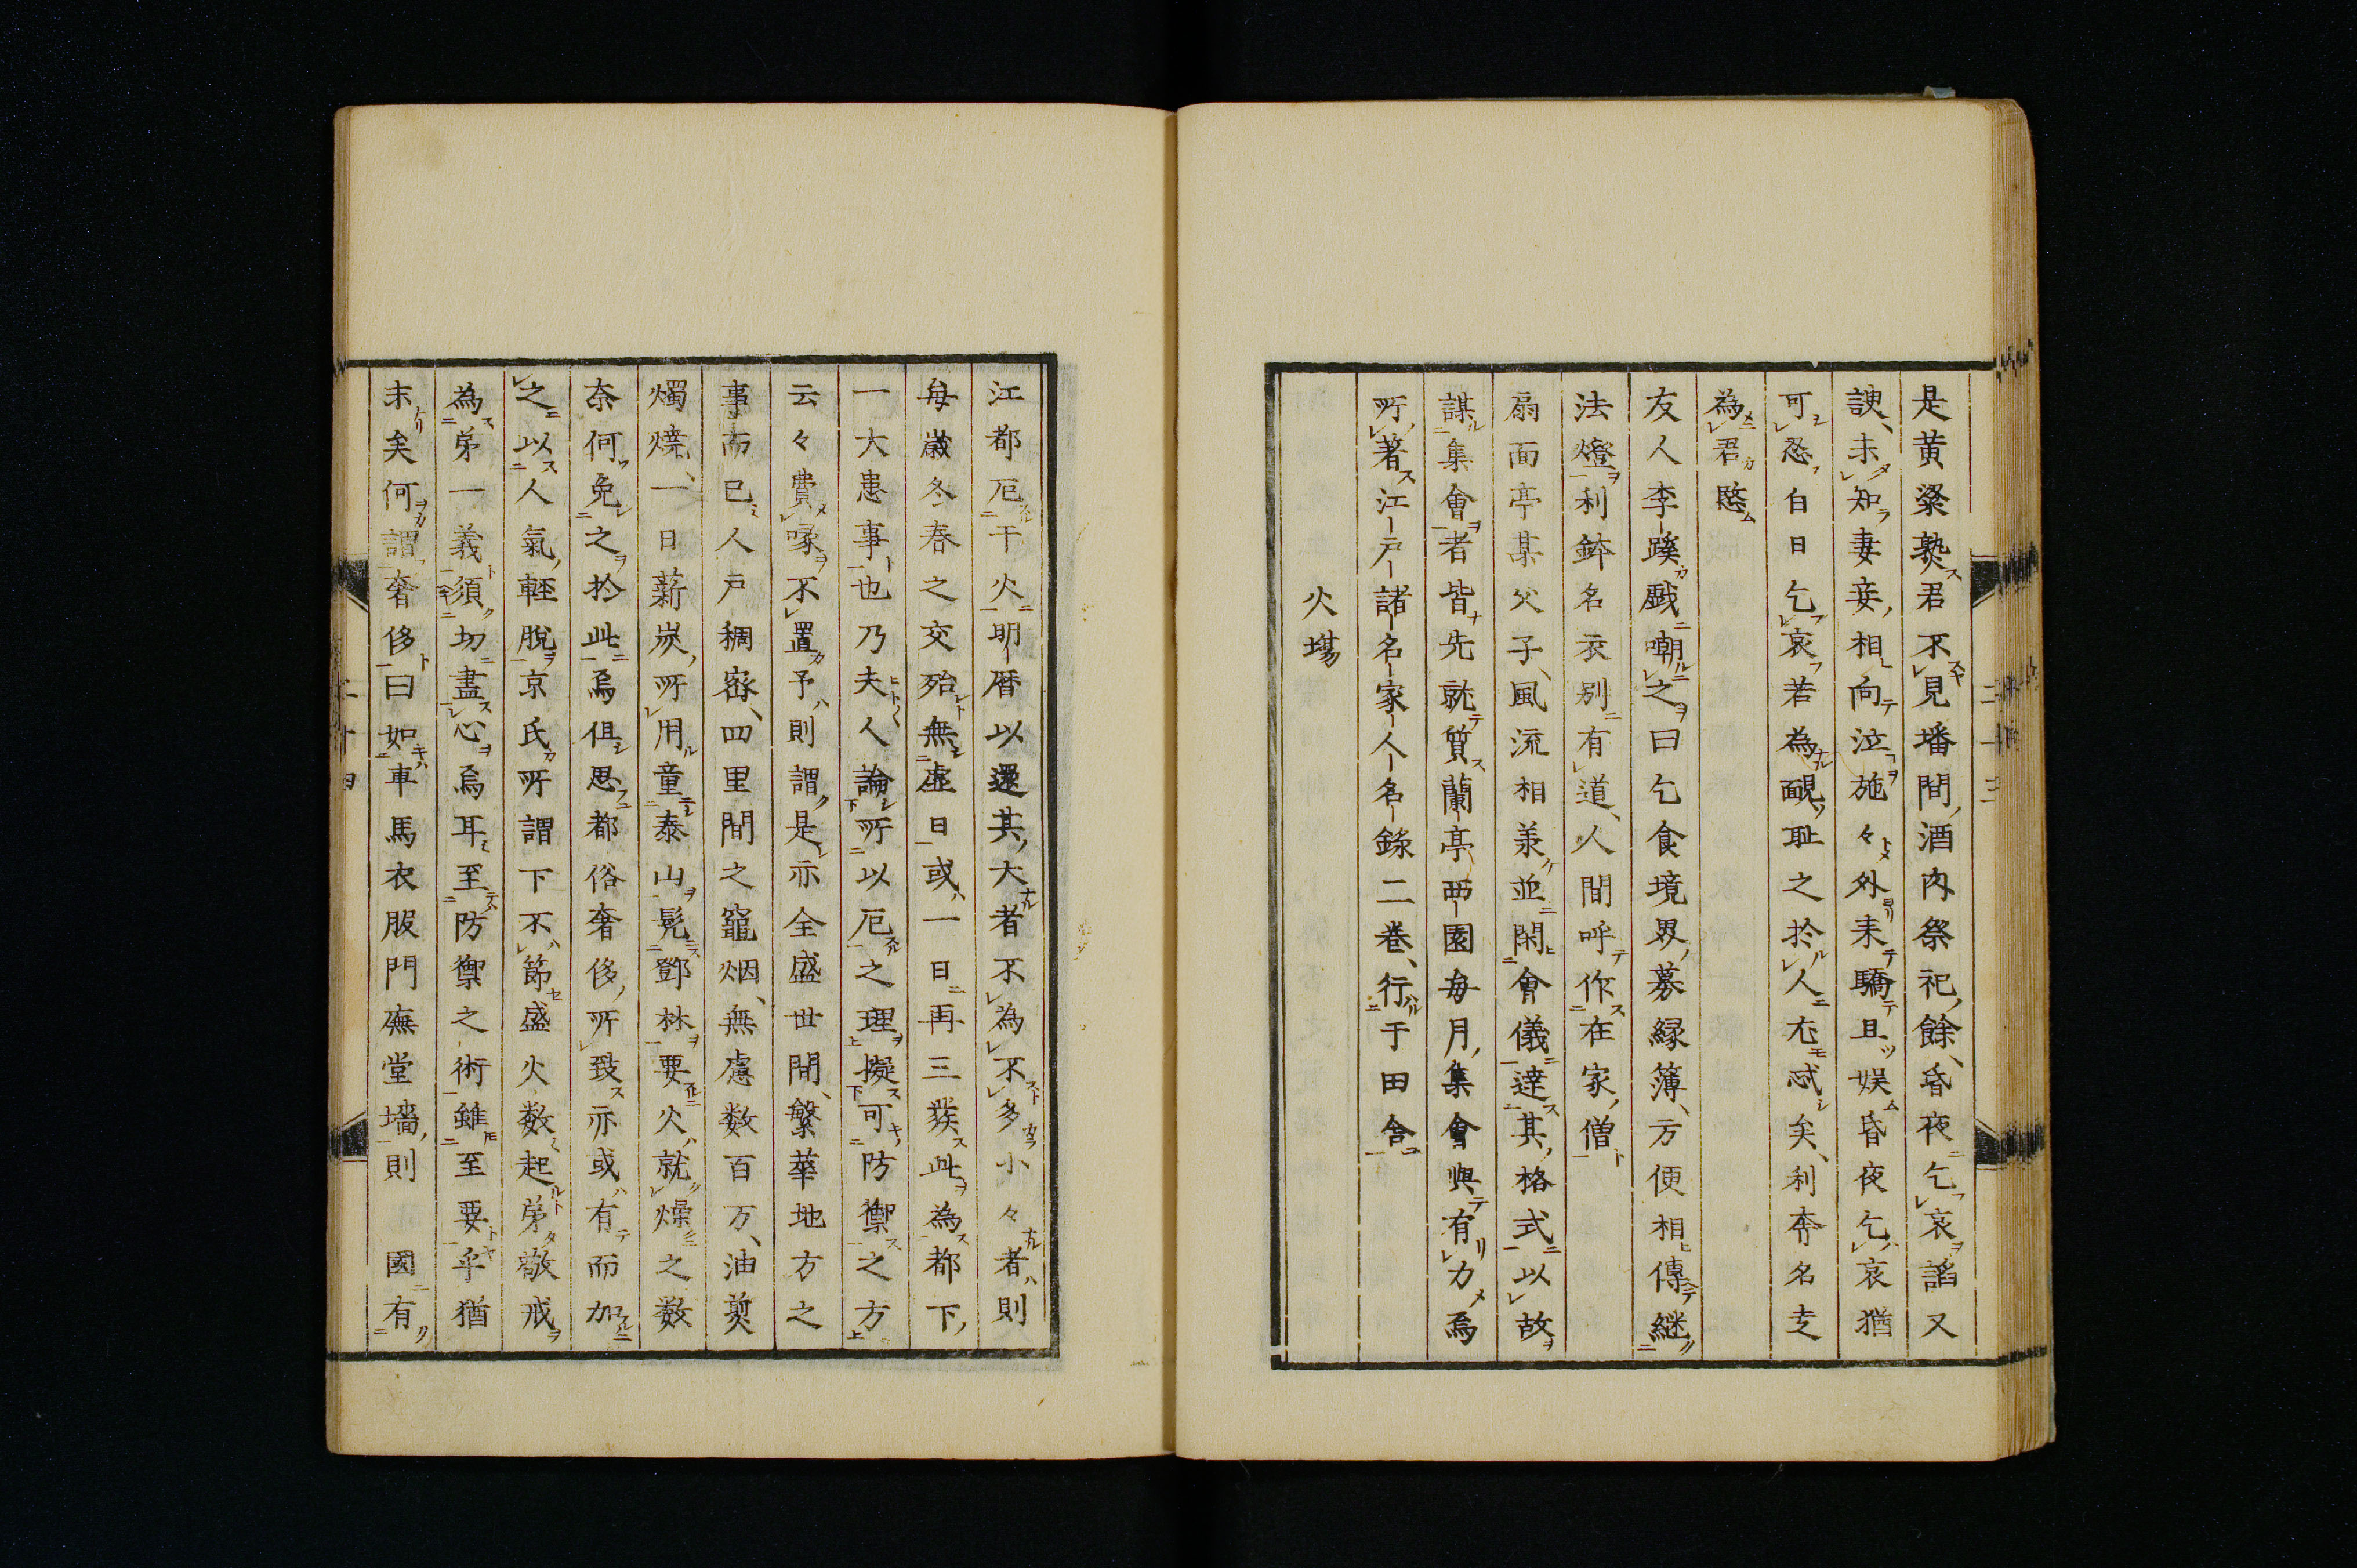 是黄粱熟君不見墦間酒肉祭祀餘昏夜乞哀謟又
諛未知妻妾相向泣施々外来驕且娯昏夜乞哀猶
可忍白日乞哀若為靦耻之於人尤忒矣利奔名走
為君愍
友人李蹊戯嘲之曰乞食境界募縁簿方便相傳継
法燈利鉢名衣別有道人間呼作在家僧
扇面亭某父子風流相兼並閑會儀達其格式以故
謀集會者皆先就質蘭亭西園毎月集會與有力焉
所著江戸諸名家人名録二巻行于田舎
火場
二十三
江都厄于火明暦以還其大者不為不多小々者則
毎歳冬春之交殆無虚日或一日再三發此為都下
一大患事也乃夫人論所以厄之理擬可防禦之方
云々費喙不置予則謂是亦全盛世間繁華地方之
事而已人戸稠密四里間之竈烟無慮数百万油煎
燭焼一日薪炭所用童泰山髡鄧林要火就燥之数
奈何免之於此焉但思都俗奢侈所致亦或有而加
之以人氣輕脱京氏所謂下不節盛火数起第敬戒
為第一義須切盡心焉耳至防禦之術雖至要乎猶
末矣何謂奢侈曰如車馬衣服門廡堂墻則　國有
二十四